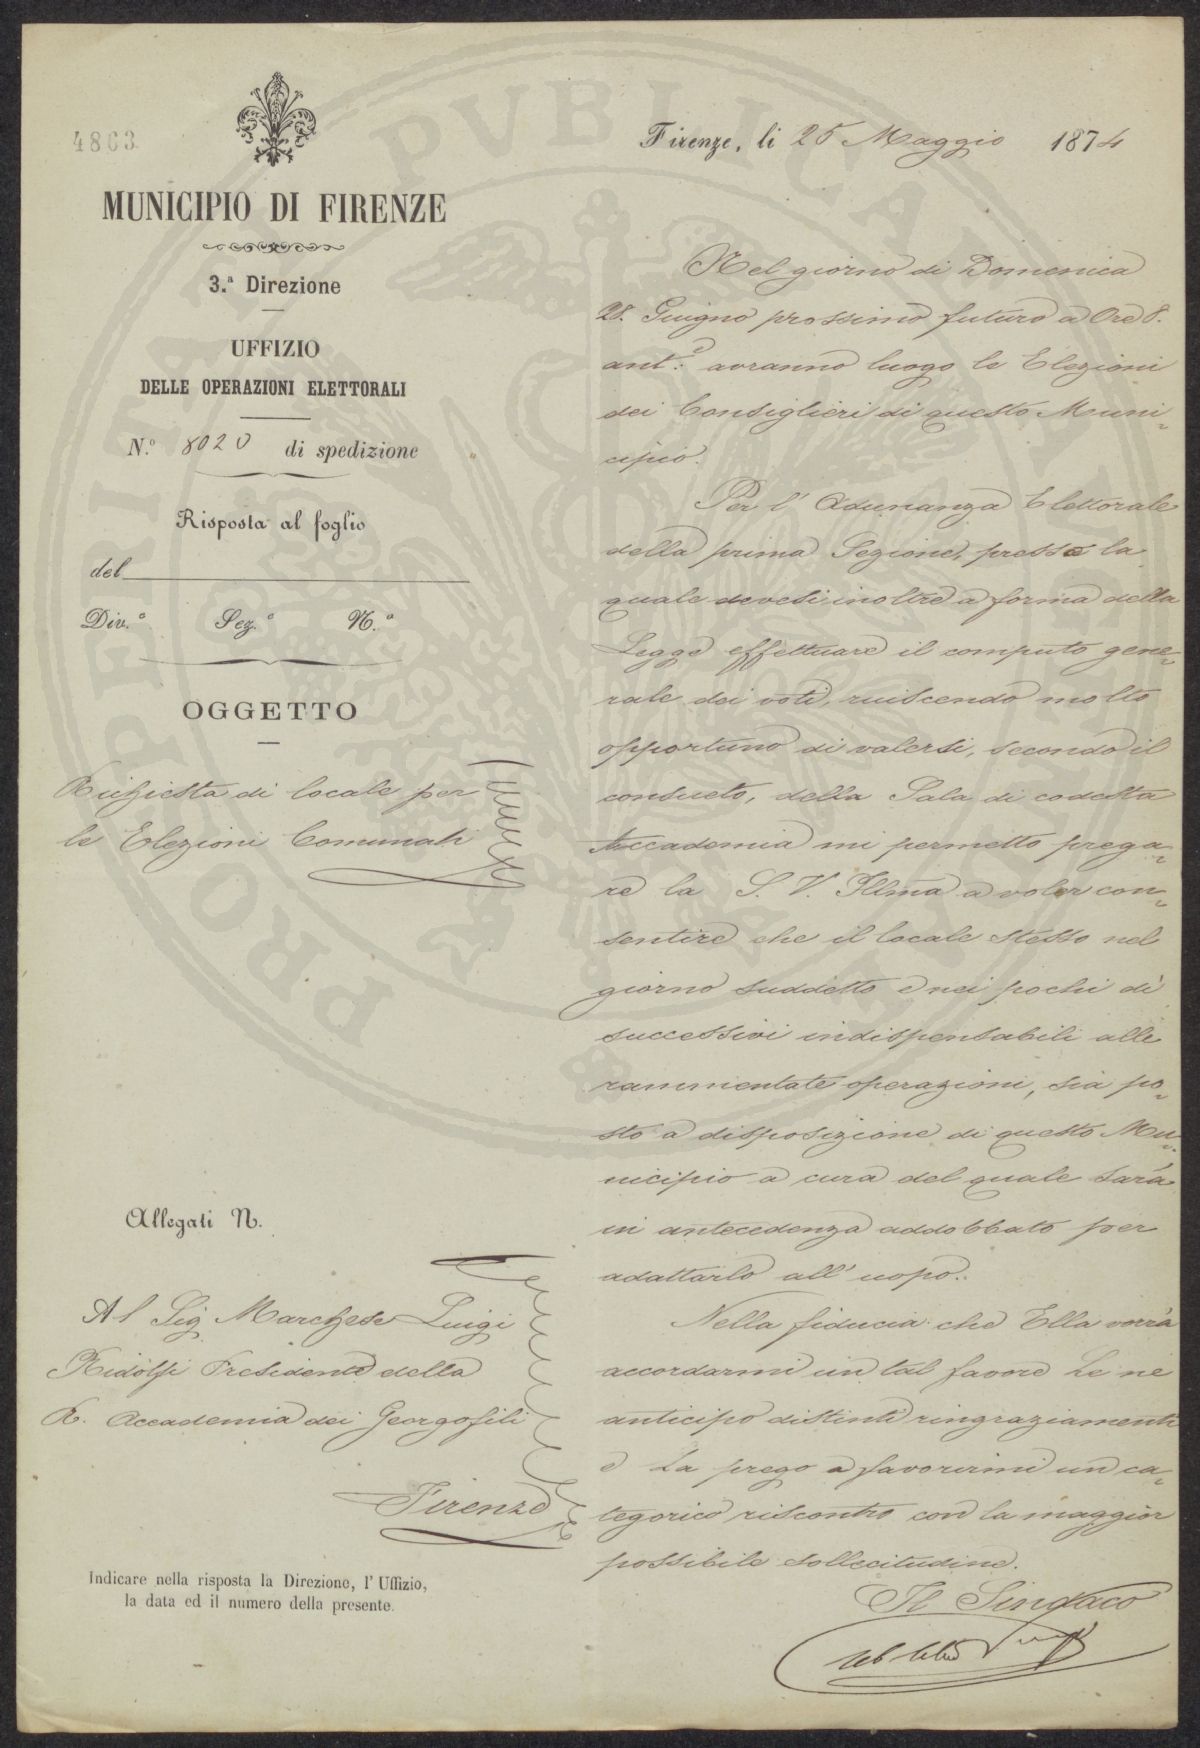 4863
MUNICIPIO DI FIRENZE
3.ª Direzione
UFFIZIO
DELLE OPERAZIONI ELETTORALI
N.º 8020 di spedizione
Risposta al foglio
del
Div.ª Sez.ª N.º
OGGETTO
Richiesta di locale per
le Elezioni Comunali
Allegati N.
Al Sig Marchese Luigi
Ridolfi Presidente della
R. Accademia dei Georgofili
Firenze
Indicare nella risposta la Direzione, l'Uffizio,
la data ed il numero della presente.
Firenze, li 25 Maggio 1874
Nel giorno di Domenica
28. Giugno prossimo futuro a Ore 8.
ant.e avranno luogo le Elezioni
dei Consiglieri di questo Muni-
cipio.
Per l'Adunanza Elettorale
della prima Sezione, presso la
quale devesi inoltre a forma della
Legge effettuare il computo gene-
rale dei voti, riuscendo molto
opportuno di valersi, secondo il
consueto, della Sala di codesta
Accademia mi permetto prega-
re la S. V. Illma a voler con-
sentire che il locale stesso nel
giorno suddetto e nei pochi dì
successivi indispensabili alle
rammentate operazioni, sia po-
sto a disposizione di questo Mu-
nicipio a cura del quale sarà
in antecedenza addobbato per
adattarlo all'uopo.
Nella fiducia che Ella vorrà
accordarmi un tal favore Le ne
anticipo distinti ringraziamenti
e La prego a favorirmi un ca-
tegorico riscontro con la maggior
possibile sollecitudine.
Il Sindaco
PROPERITATI PVBLICAE